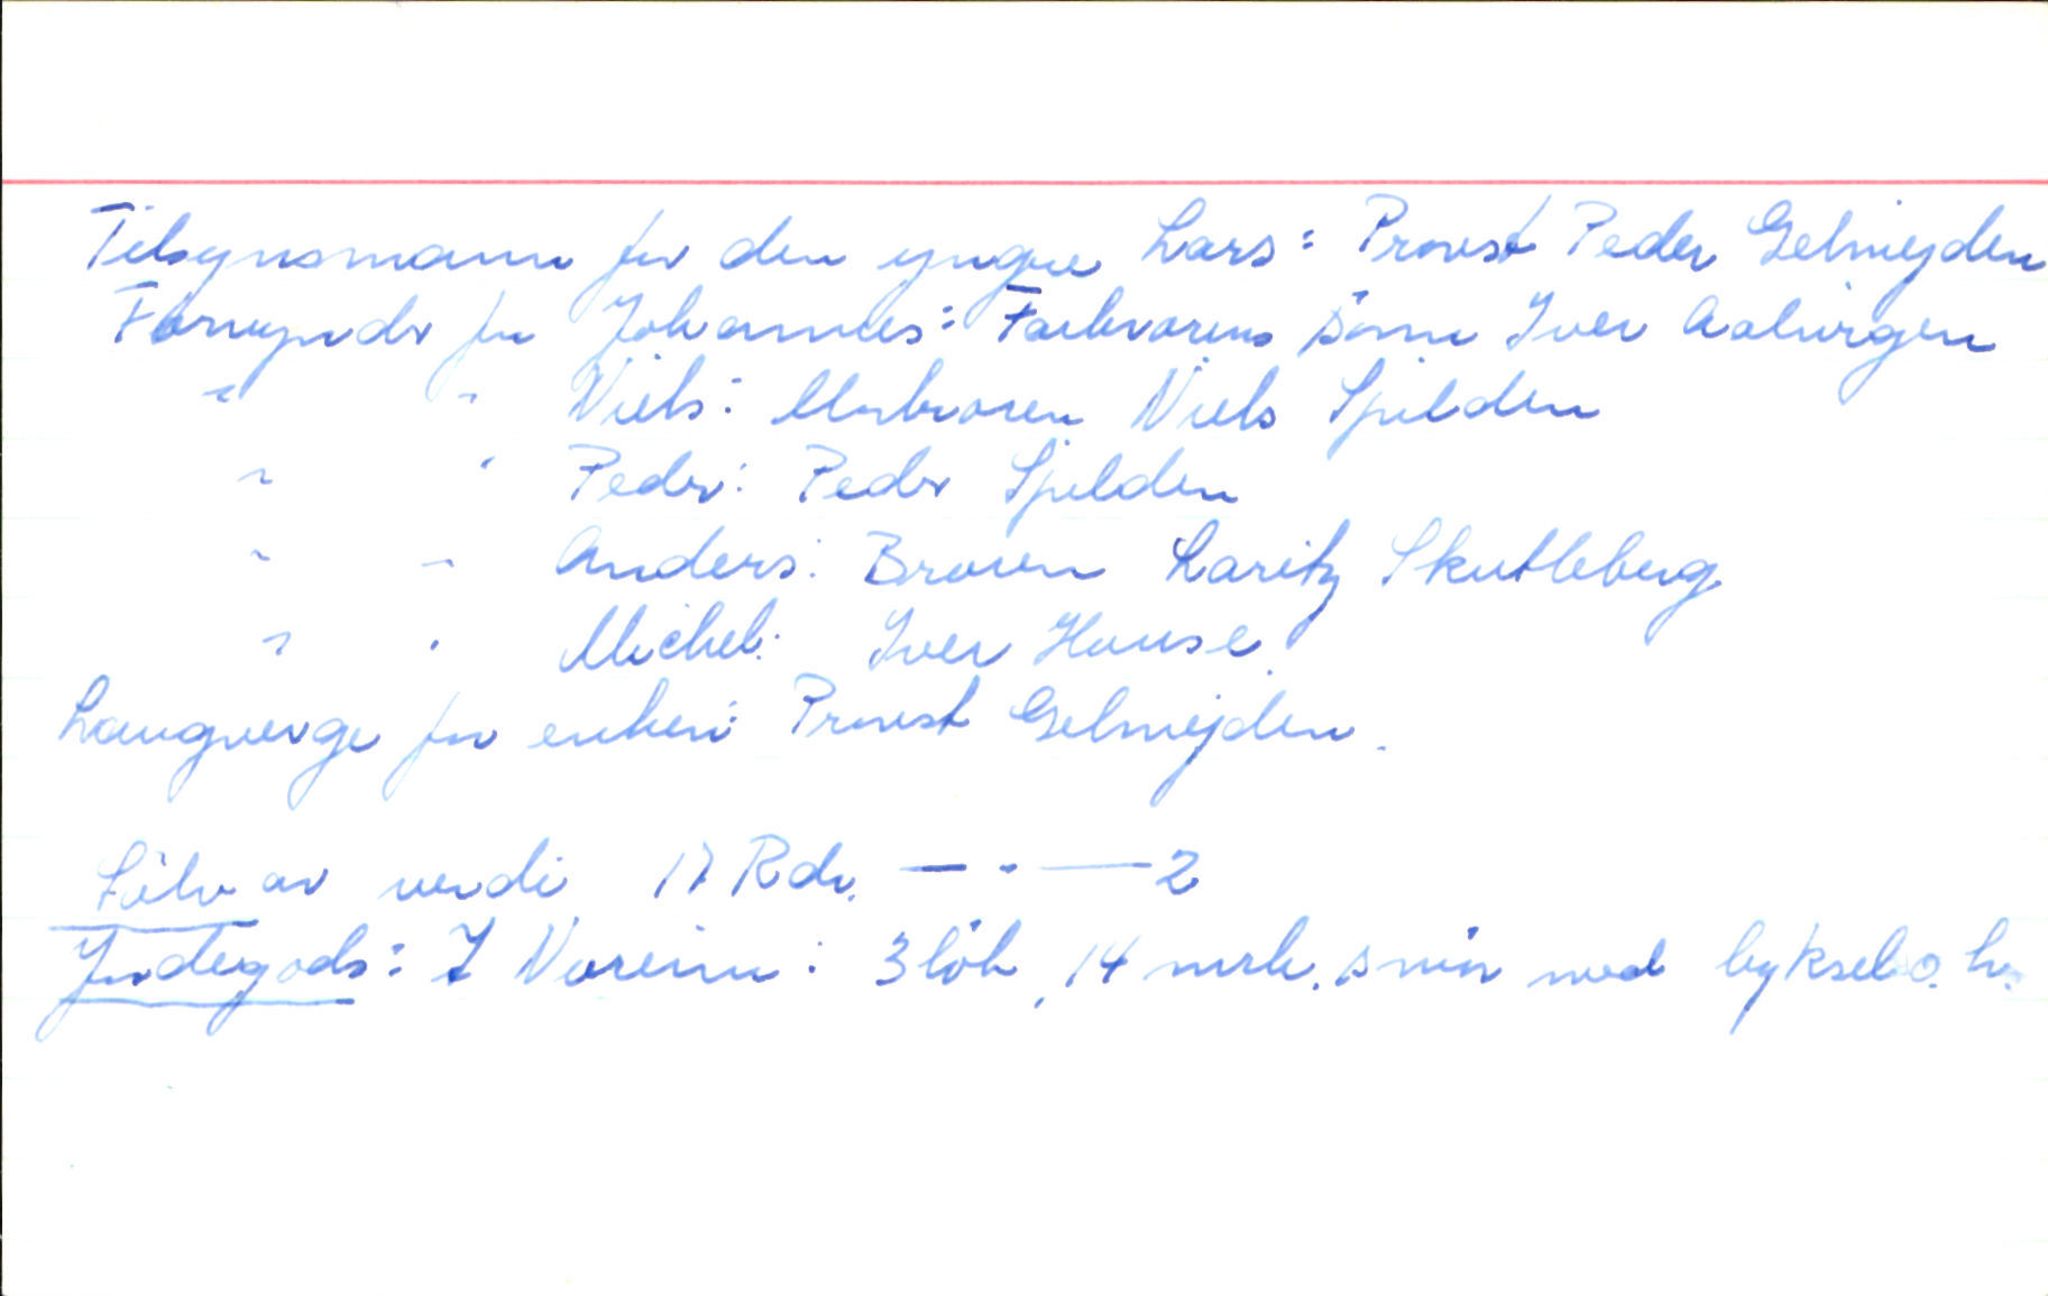 Tilsynsmann for den yngre Lars: Provst Peder Gelmejden
Formynder for Johannes: Farbrorens sønn Iver
" " Niels: Morbroren Niels Spilden
" " Peder: Peder Spilden
" " Anders: Broren Laritz Skutleberg
" " Michel: Iver House
Laugverge for enken: Provst Gelmejden.
Sölv av verdi 17 Rdr. — - — 2
Jordegods: I Noreim: 3 löb, 14 mrk. smör med byksel o. h.